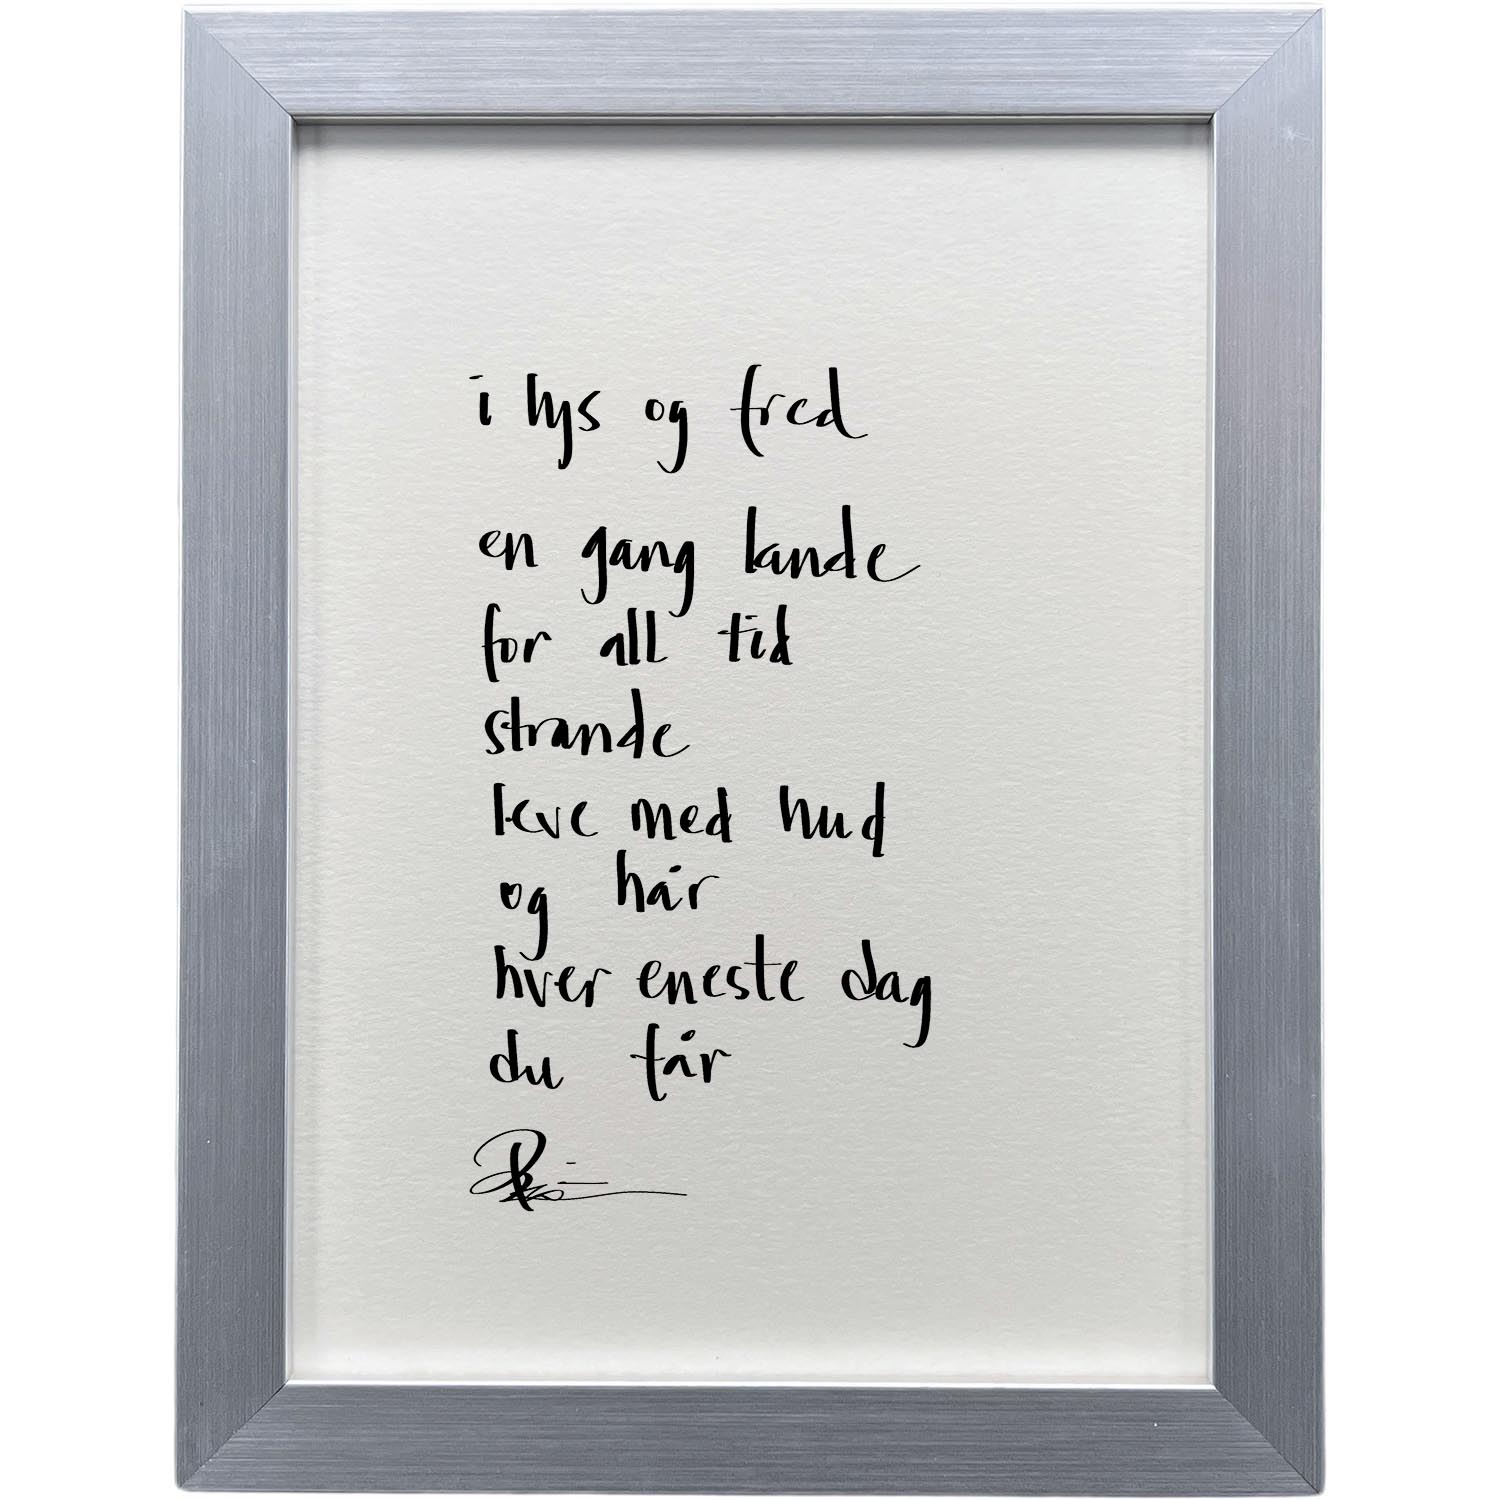 i lys og fred
en gang lande
for all tid
strande
leve med hud
og hår
hver eneste dag
du får